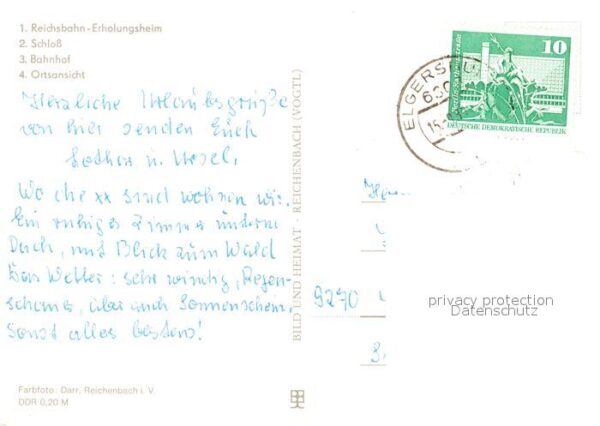 1. Reichsbahn-Erholungsheim
2. Schloß
3. Bahnhof
4. Ortsansicht
Herzliche Urlaubsgrüße
von hier senden Euch
Lothar u. Ursel.
Wo die xx sind wohnen wir.
Ein ruhiges Zimmer unterm
Dach, mit Blick zum Wald
Das Wetter: sehr windig, Regen-
schauer, aber auch Sonnenschein.
Sonst alles bestens!
Farbfoto: Darr, Reichenbach i. V.
DDR 0,20 M
BILD UND HEIMAT REICHENBACH (VOGTL)
ELGERS
630
15.
10
DEUTSCHE DEMOKRATISCHE REPUBLIK
9270
privacy protection
Datenschutz